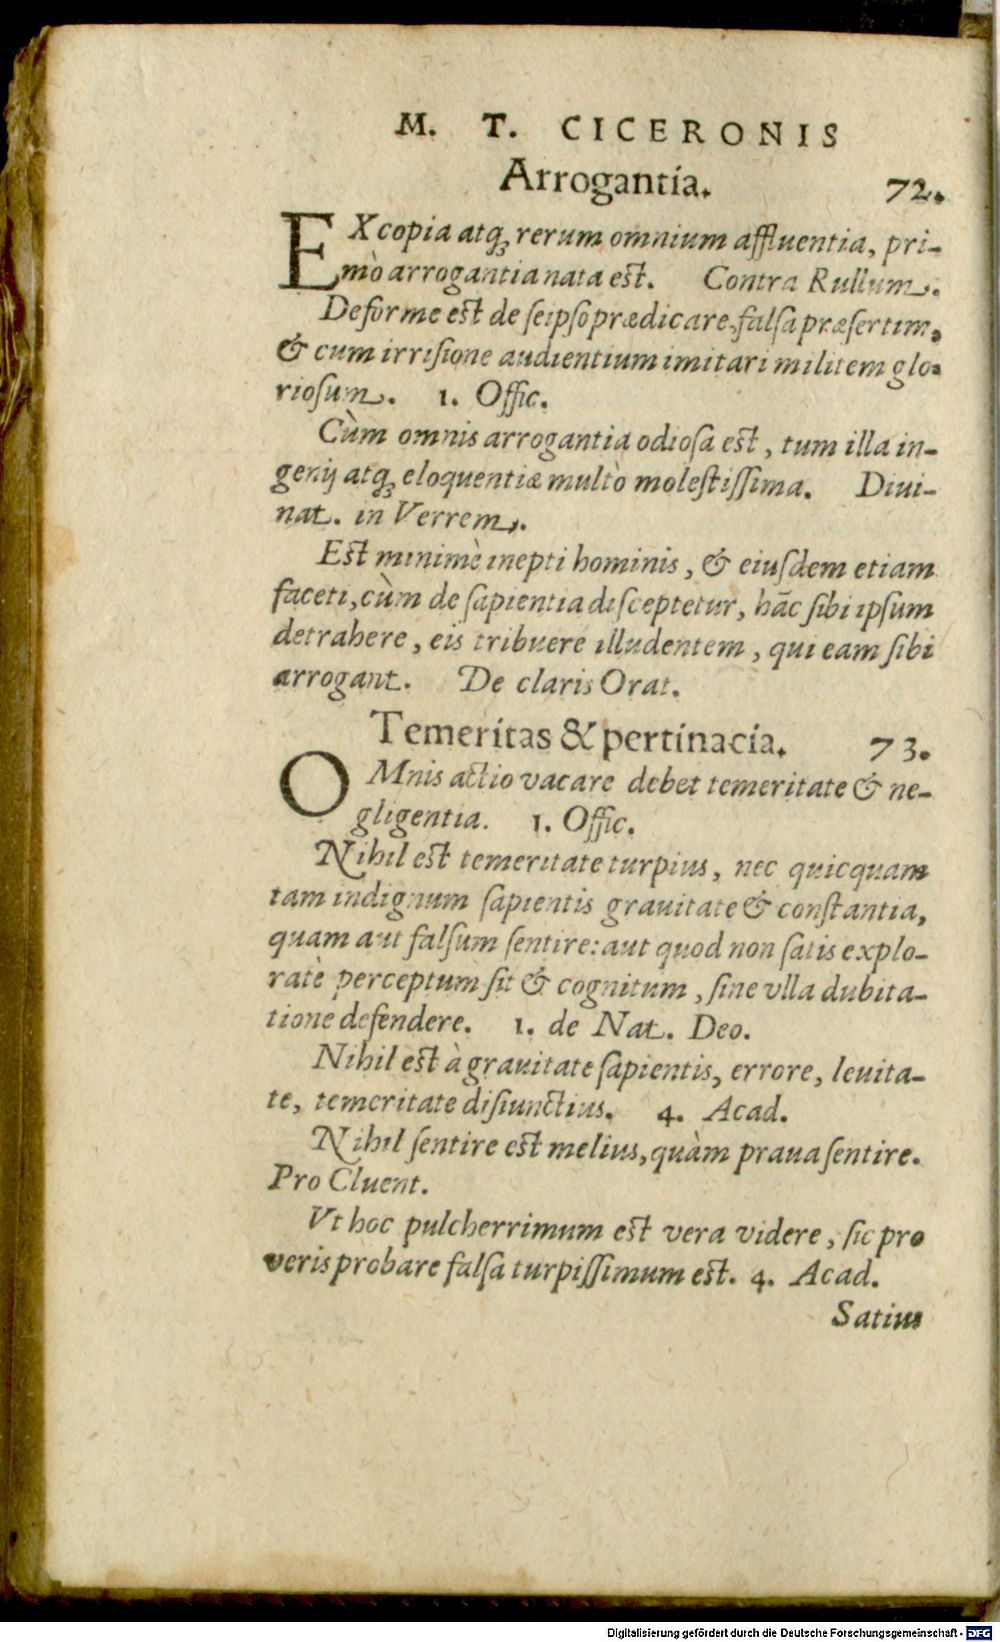 M. T. CICERONIS
Arrogantia. 72.
EX copia atq; rerum omnium affluentia, pri-
mò arrogantia nata est. Contra Rullum.
Deforme est de seipso prædicare, falsa præsertim,
& cum irrisione audientium imitari militem glo-
riosum. 1. Offic.
Cùm omnis arrogantia odiosa est, tum illa in-
genij atq; eloquentiæ multò molestissima. Diui-
nat. in Verrem.
Est minimè inepti hominis, & eiusdem etiam
faceti, cùm de sapientia disceptetur, hãc sibi ipsum
detrahere, eis tribuere illudentem, qui eam sibi
arrogant. De claris Orat.
Temeritas & pertinacia. 73.
OMnis actio vacare debet temeritate & ne-
gligentia. 1. Offic.
Nihil est temeritate turpius, nec quicquam
tam indignum sapientis grauitate & constantia,
quam aut falsum sentire: aut quod non satis explo-
ratè perceptum sit & cognitum, sine vlla dubita-
tione defendere. 1. de Nat. Deo.
Nihil est à grauitate sapientis, errore, leuita-
te, temeritate disiunctius. 4. Acad.
Nihil sentire est melius, quàm praua sentire.
Pro Cluent.
Vt hoc pulcherrimum est vera videre, sic pro
veris probare falsa turpissimum est. 4. Acad.
Satius
Digitalisierung gefördert durch die Deutsche Forschungsgemeinschaft - DFG